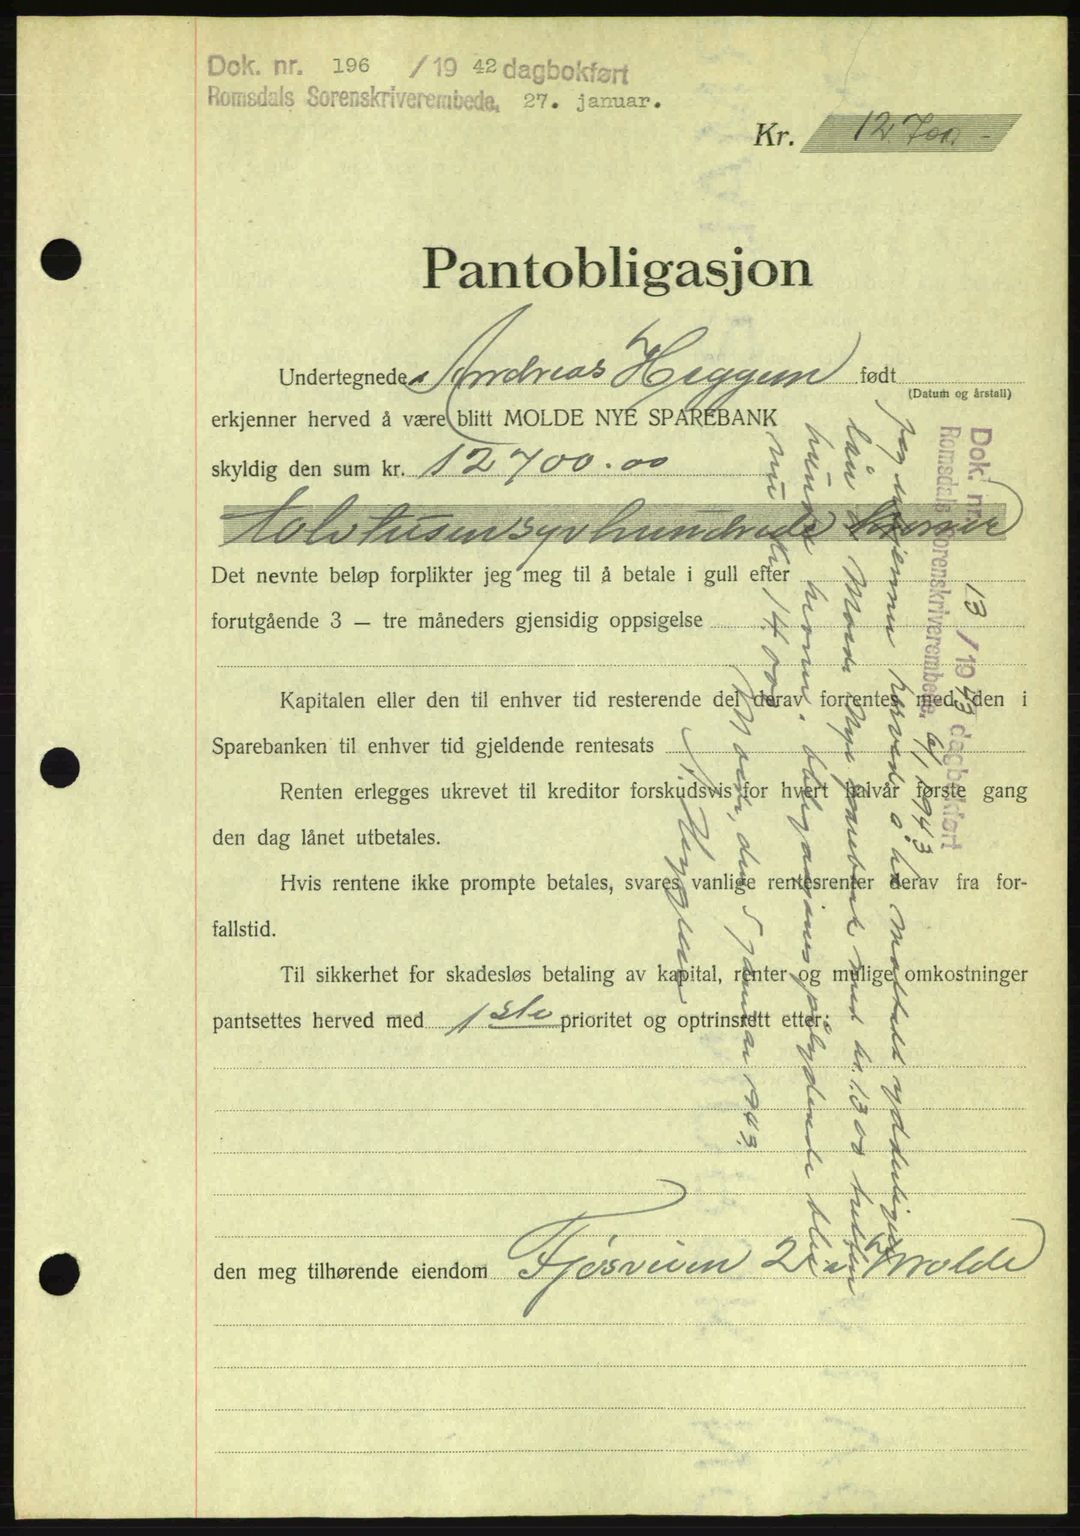 Dok. nr. 196 /19 42 dagbokført
Romsdals Sorenskriverembede, 27. januar.
Kr. 12.700.-
Pantobligasjon
Undertegnede Andreas Heggem født
(Datum og årstall)
erkjenner herved å være blitt MOLDE NYE SPAREBANK
skyldig den sum kr. 12700.00
tolvtusensyvhundrede kroner
Det nevnte beløp forplikter jeg meg til å betale i gull efter
forutgående 3 — tre måneders gjensidig oppsigelse
Kapitalen eller den til enhver tid resterende del derav forrentes med den i
Sparebanken til enhver tid gjeldende rentesats
Renten erlegges ukrevet til kreditor forskudsvis for hvert halvår første gang
den dag lånet utbetales.
Hvis rentene ikke prompte betales, svares vanlige rentesrenter derav fra for-
fallstid.
Til sikkerhet for skadesløs betaling av kapital, renter og mulige omkostninger
pantsettes herved med 1ste prioritet og optrinsrett etter:
den meg tilhørende eiendom Fjøsveien 2 Molde
Dok. nr. 13 /19 43 dagbokført
Romsdals Sorenskriverembede, 6/1 1943
Jeg erkjenner herved å ha mottatt ydderligere
lån i Molde Nye Sparebank med kr. 1300 tretten
hundre kroner. Obligasjonens pålydende blir
nu kr. 14000
Molde, den 5 januar 1943.
A. Heggem